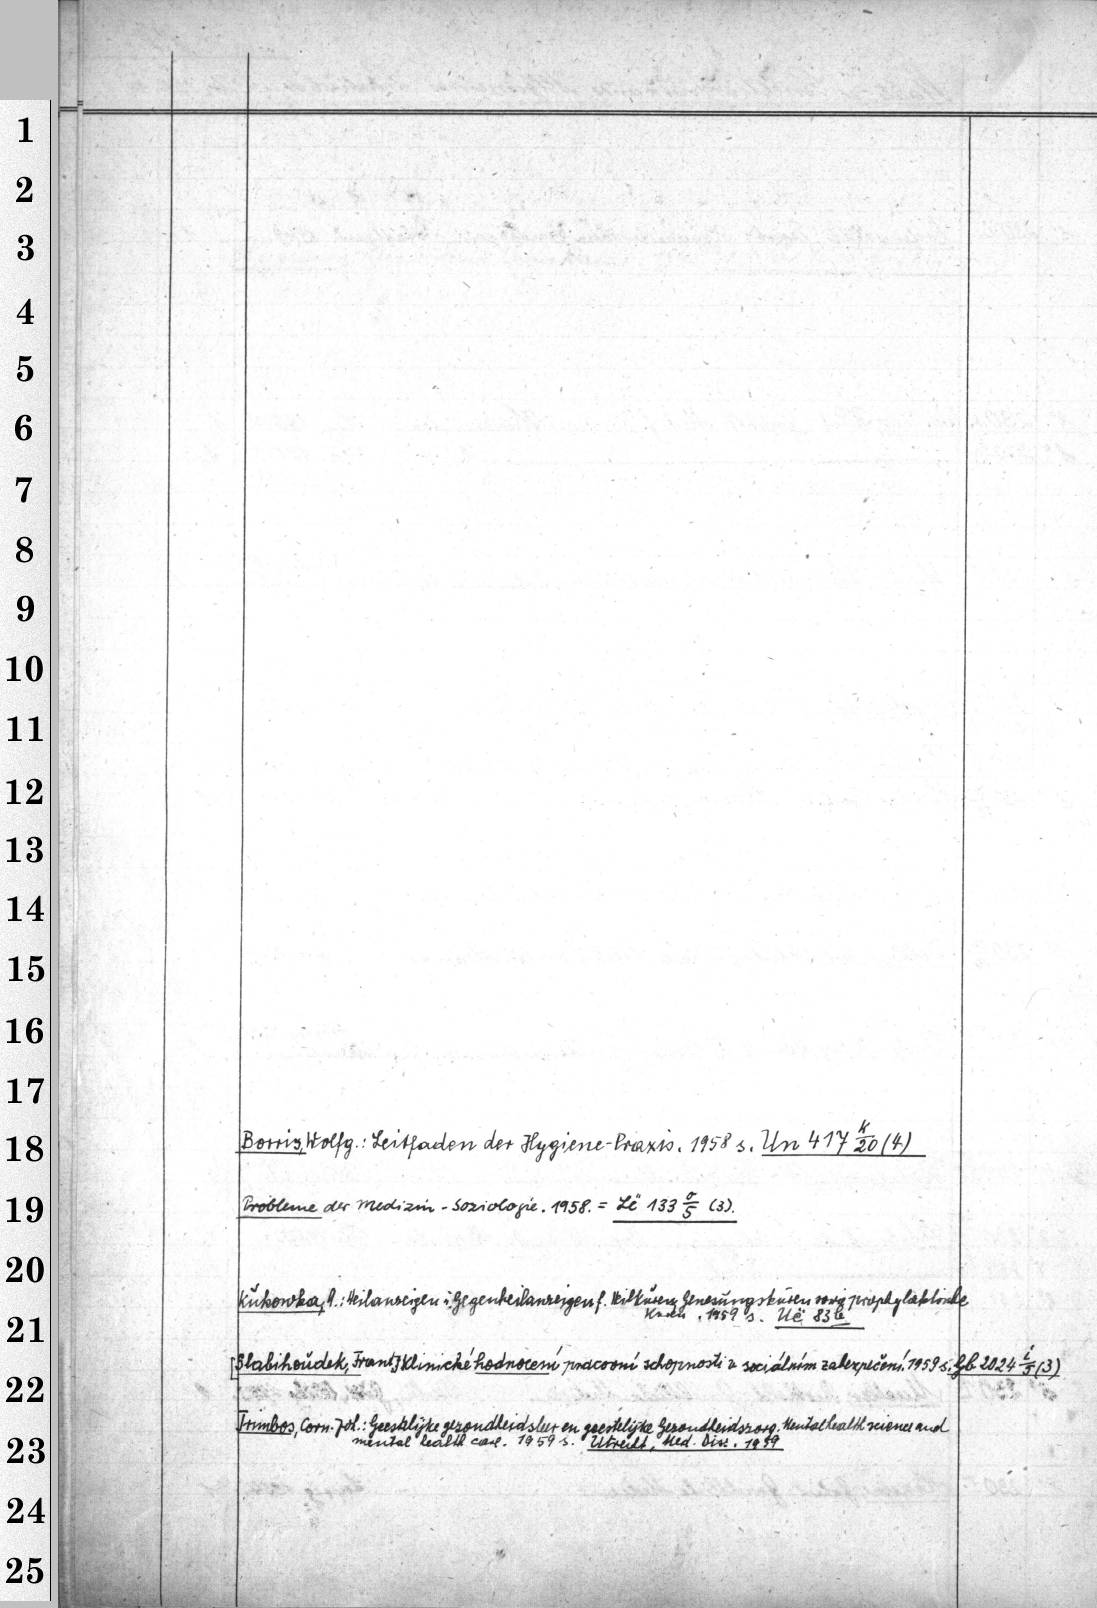 1
2
3
4
5
6
7
8
9
10
11
12
13
14
15
16
17
18
19
20
21
22
23
24
25
Borris, Wolfg.: Leitfaden der Hygiene-Praxis. 1958 s. Un 417 k/20 (4)
Probleme der Medizin-Soziologie. 1958. = Lë 133 5 (3).
Kukowka, A.: Heilanzeigen u. Gegenheilanzeigen f. Heilkuren, Genesungskuren sowie prophylaktische
Kuren. 1959 s. Uë 836
[Blahihoudek, Frant.] Klinické hodnocení pracovní schopnosti v sociálním zabezpečení. 1959 s. Gb 2024 i/5 (3)
Trimbos, Corn. Joh.: Geestelijke gezondheidsleer en geestelijke Gezondheidszorg. Mental health science and
mental health care. 1959 s. Utrecht, Med. Diss. 1959